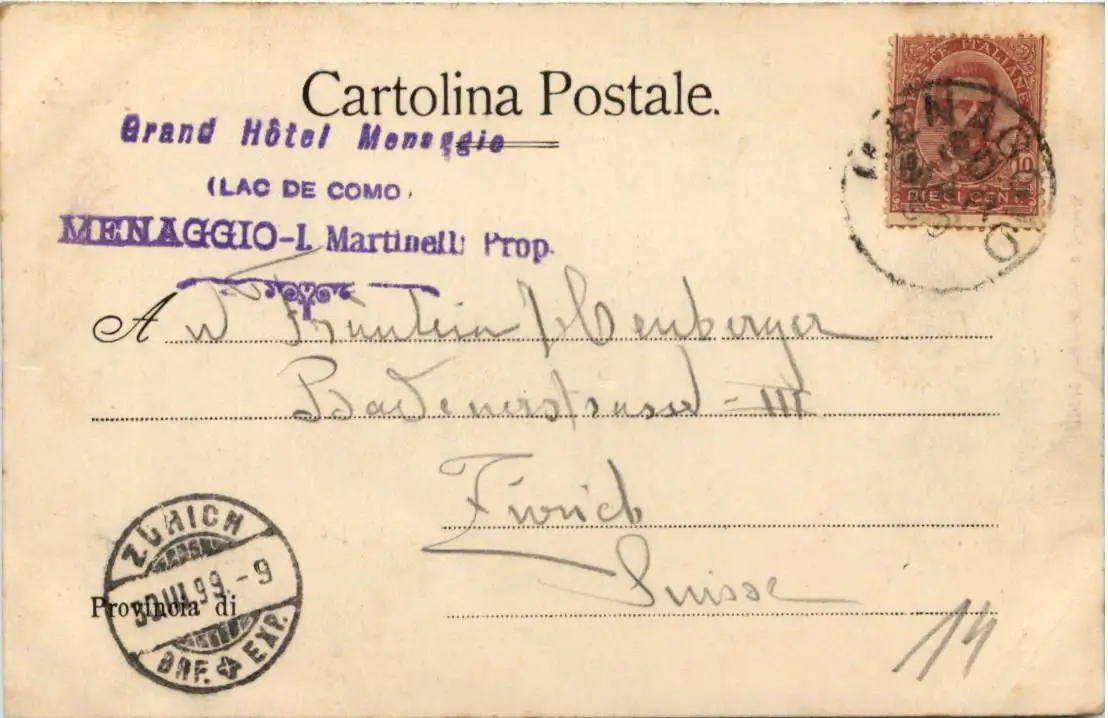 Cartolina Postale.
POSTE ITALIANE
10 10
DIECI CENT
Grand Hôtel Menaggio
(LAC DE COMO)
MENAGGIO-I. Martinelli Prop.
A Fräulein
Badenerstrasse - III
Zürich
Suisse
Provincia di
ZÜRICH
30.III.99.-9
BRF. EXP.
14